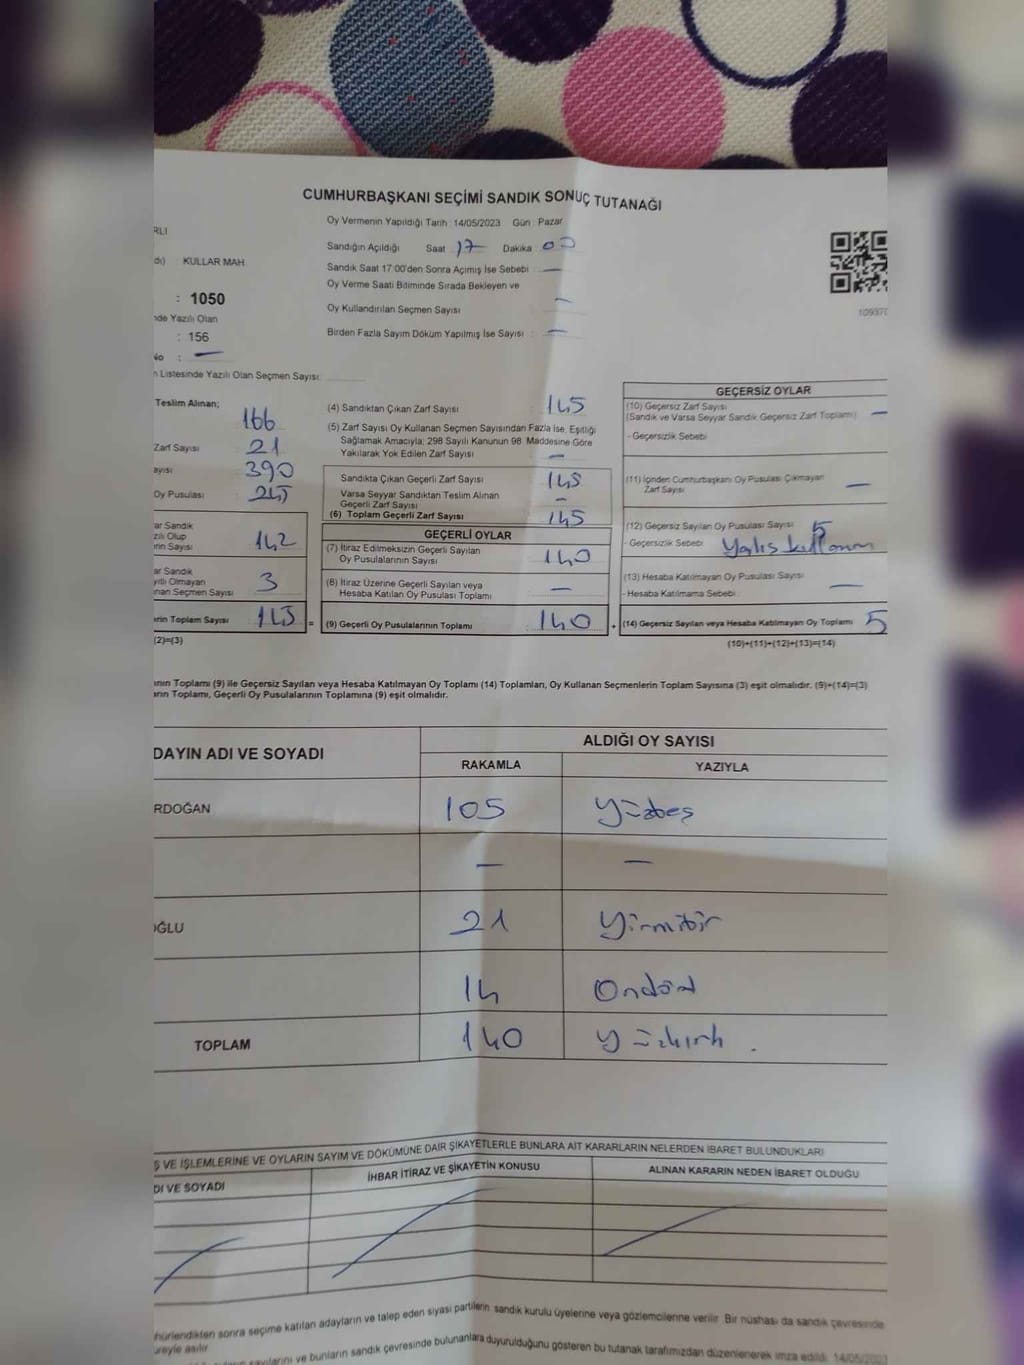 CUMHURBAŞKANI SEÇİMİ SANDIK SONUÇ TUTANAĞI
RLI
Oy Vermenin Yapıldığı Tarih : 14/05/2023 Gün : Pazar
Sandığın Açıldığı Saat 17 Dakika 00
dı) : KULLAR MAH.
Sandık Saat 17:00'den Sonra Açımış İse Sebebi : —
Oy Verme Saati Bitiminde Sırada Bekleyen ve
: 1050
Oy Kullandırılan Seçmen Sayısı —
nde Yazılı Olan
: 156
Birden Fazla Sayım Döküm Yapılmış İse Sayısı : —
No : —
n Listesinde Yazılı Olan Seçmen Sayısı:
Teslim Alınan;
166
Zarf Sayısı 21
ayısı 390
Oy Pusulası 245
ar Sandık
zılı Olup
rin Sayısı 142
ar Sandık
yıtlı Olmayan
nan Seçmen Sayısı 3
rin Toplam Sayısı 145 =
(2)=(3)
(4) Sandıktan Çıkan Zarf Sayısı : 145
(5) Zarf Sayısı Oy Kullanan Seçmen Sayısından Fazla İse, Eşitliği
Sağlamak Amacıyla; 298 Sayılı Kanunun 98. Maddesine Göre
Yakılarak Yok Edilen Zarf Sayısı —
Sandıkta Çıkan Geçerli Zarf Sayısı 145
Varsa Seyyar Sandıktan Teslim Alınan
Geçerli Zarf Sayısı —
(6) Toplam Geçerli Zarf Sayısı 145
GEÇERLİ OYLAR
(7) İtiraz Edilmeksizin Geçerli Sayılan
Oy Pusulalarının Sayısı 140
(8) İtiraz Üzerine Geçerli Sayılan veya
Hesaba Katılan Oy Pusulası Toplamı —
(9) Geçerli Oy Pusulalarının Toplamı : 140 +
109370
GEÇERSİZ OYLAR
(10) Geçersiz Zarf Sayısı
(Sandık ve Varsa Seyyar Sandık Geçersiz Zarf Toplamı) —
- Geçersizlik Sebebi
(11) İçinden Cumhurbaşkanı Oy Pusulası Çıkmayan
Zarf Sayısı —
(12) Geçersiz Sayılan Oy Pusulası Sayısı 5
- Geçersizlik Sebebi Yanlış kullanım
(13) Hesaba Katılmayan Oy Pusulası Sayısı —
- Hesaba Katılmama Sebebi :
(14) Geçersiz Sayılan veya Hesaba Katılmayan Oy Toplamı 5
(10)+(11)+(12)+(13)=(14)
nın Toplamı (9) ile Geçersiz Sayılan veya Hesaba Katılmayan Oy Toplamı (14) Toplamları, Oy Kullanan Seçmenlerin Toplam Sayısına (3) eşit olmalıdır. (9)+(14)=(3)
arın Toplamı, Geçerli Oy Pusulalarının Toplamına (9) eşit olmalıdır.
DAYIN ADI VE SOYADI ALDIĞI OY SAYISI
RAKAMLA YAZIYLA
RDOĞAN 105 Yüzbeş
— —
OĞLU 21 Yirmibir
14 Ondört
TOPLAM 140 yüzkırk .
Ş VE İŞLEMLERİNE VE OYLARIN SAYIM VE DÖKÜMÜNE DAİR ŞİKAYETLERLE BUNLARA AİT KARARLARIN NELERDEN İBARET BULUNDUKLARI
DI VE SOYADI İHBAR İTİRAZ VE ŞİKAYETİN KONUSU ALINAN KARARIN NEDEN İBARET OLDUĞU
hürlendikten sonra seçime katılan adayların ve talep eden siyasi partilerin sandık kurulu üyelerine veya gözlemcilerine verilir. Bir nüshası da sandık çevresinde
üreyle asılır.
sayılarını ve bunların sandık çevresinde bulunanlara duyurulduğunu gösteren bu tutanak tarafımızdan düzenlenerek imza edildi. 14/05/2023